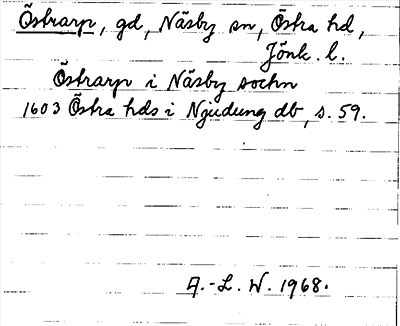 Östrarp, gd, Näsby sn, Östra hd,
Jönk. l.
Östrarp i Näsby sochn
1603 Östra hds i Njudung db, s. 59.
A.-L. W. 1968.